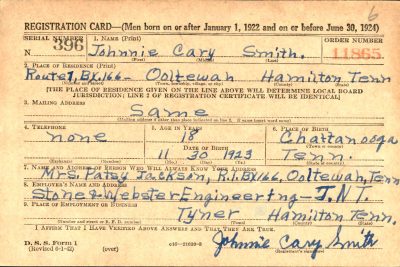 6
REGISTRATION CARD—(Men born on or after January 1, 1922 and on or before June 30, 1924)
SERIAL NUMBER 396
1. NAME (Print) Johnnie Cary Smith.
(First) (Middle) (Last)
ORDER NUMBER 11865
2. PLACE OF RESIDENCE (Print)
Route 1 Bx 166 - Ooltewah Hamilton Tenn
[THE PLACE OF RESIDENCE GIVEN ON THE LINE ABOVE WILL DETERMINE LOCAL BOARD
JURISDICTION; LINE 2 OF REGISTRATION CERTIFICATE WILL BE IDENTICAL]
3. MAILING ADDRESS
Same
[Mailing address if other than place indicated on line 2. If same insert word same]
4. TELEPHONE
none
5. AGE IN YEARS
18
DATE OF BIRTH
11 30 1923
(Mo.) (Day) (Yr.)
6. PLACE OF BIRTH
Chattanooga
(Town or county)
Tenn.
(State or country)
7. NAME AND ADDRESS OF PERSON WHO WILL ALWAYS KNOW YOUR ADDRESS
Mrs. Patsy Jackson, R.1. Bx 166, Ooltewah, Tenn
8. EMPLOYER'S NAME AND ADDRESS
Stone & Webster Engineering - T.N.T.
9. PLACE OF EMPLOYMENT OR BUSINESS
Tyner Hamilton Tenn.
(Number and street or R. F. D. number) (Town) (County) (State)
I AFFIRM THAT I HAVE VERIFIED ABOVE ANSWERS AND THAT THEY ARE TRUE.
D. S. S. Form 1
(Revised 6-1-42) (over)
Johnnie Cary Smith
(Registrant's signature)